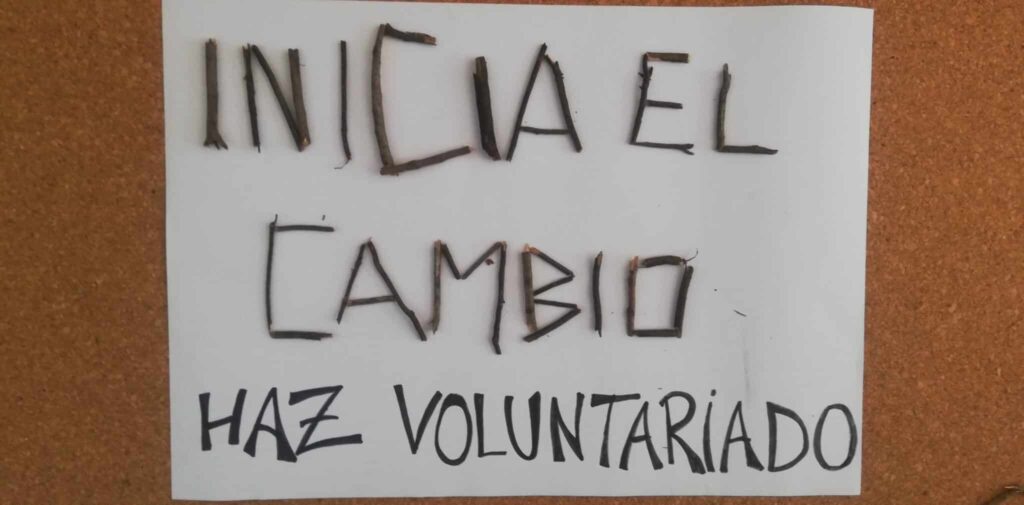 INICIA EL
CAMBIO
HAZ VOLUNTARIADO